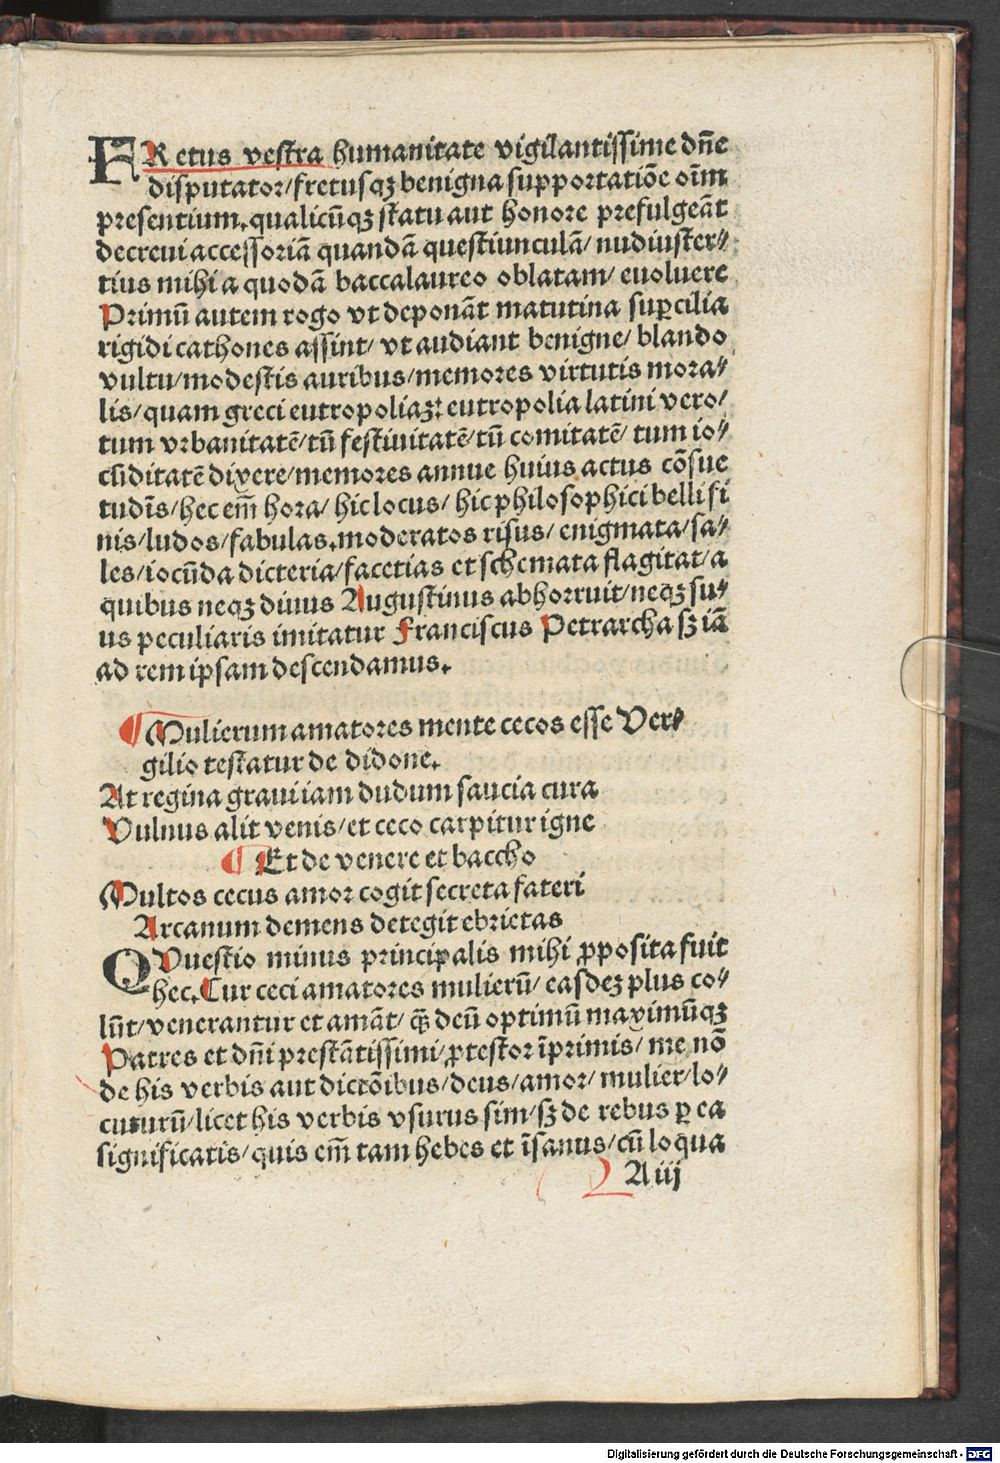 FRetus vestra humanitate vigilantissime dñe
disputator/fretusqꝫ benigna supportatiõe oĩm
presentium.qualicũqꝫ statu aut honore prefulgeãt
decreui accessoriã quandã questiunculã/ nudiuster⸗
tius mihi a quodã baccalaureo oblatam/ euoluere
Primũ autem rogo vt deponãt matutina suꝑcilia
rigidi cathones assint/ vt audiant benigne/ blando
vultu/modestis auribus/memores virtutis mora⸗
lis/quam greci eutropoliaꝫ: eutropolia latini vero/
tum vrbanitatẽ/tũ festiuitatẽ/tũ comitatẽ/ tum io⸗
cũditatẽ dixere/memores annue huius actus cõsue
tudĩs/hec em̃ hora/ hic locus/ hic philosophici belli fi
nis/ludos/fabulas.moderatos risus/ enigmata/sa⸗
les/iocũda dicteria/facetias et schemata flagitat/a
quibus neqꝫ diuus Augustinus abhorruit/neqꝫ su⸗
us peculiaris imitatur Franciscus Petrarcha sꝫ iã
ad rem ipsam descendamus.
¶ Mulierum amatores mente cecos esse Ver⸗
gilio testatur de didone.
At regina graui iam dudum saucia cura
Vulnus alit venis/et ceco carpitur igne
¶ Et de venere et baccho
Multos cecus amor cogit secreta fateri
Arcanum demens detegit ebrietas
QVuestio minus principalis mihi ꝓposita fuit
hec.Cur ceci amatores mulierũ/ easdeꝫ plus co⸗
lũt/venerantur et amãt/ q̃ꝫ deũ optimũ maximũqꝫ
Patres et dñi prestãtissimi/ꝓtestor ĩprimis/ me nõ
de his verbis aut dictõibus/deus/amor/ mulier/lo⸗
cuturũ/licet his verbis vsurus sim/sꝫ de rebus ꝑ ea
significatis/quis em̃ tam hebes et ĩsanus/cũ loqua
A iij
Digitalisierung gefördert durch die Deutsche Forschungsgemeinschaft - DFG